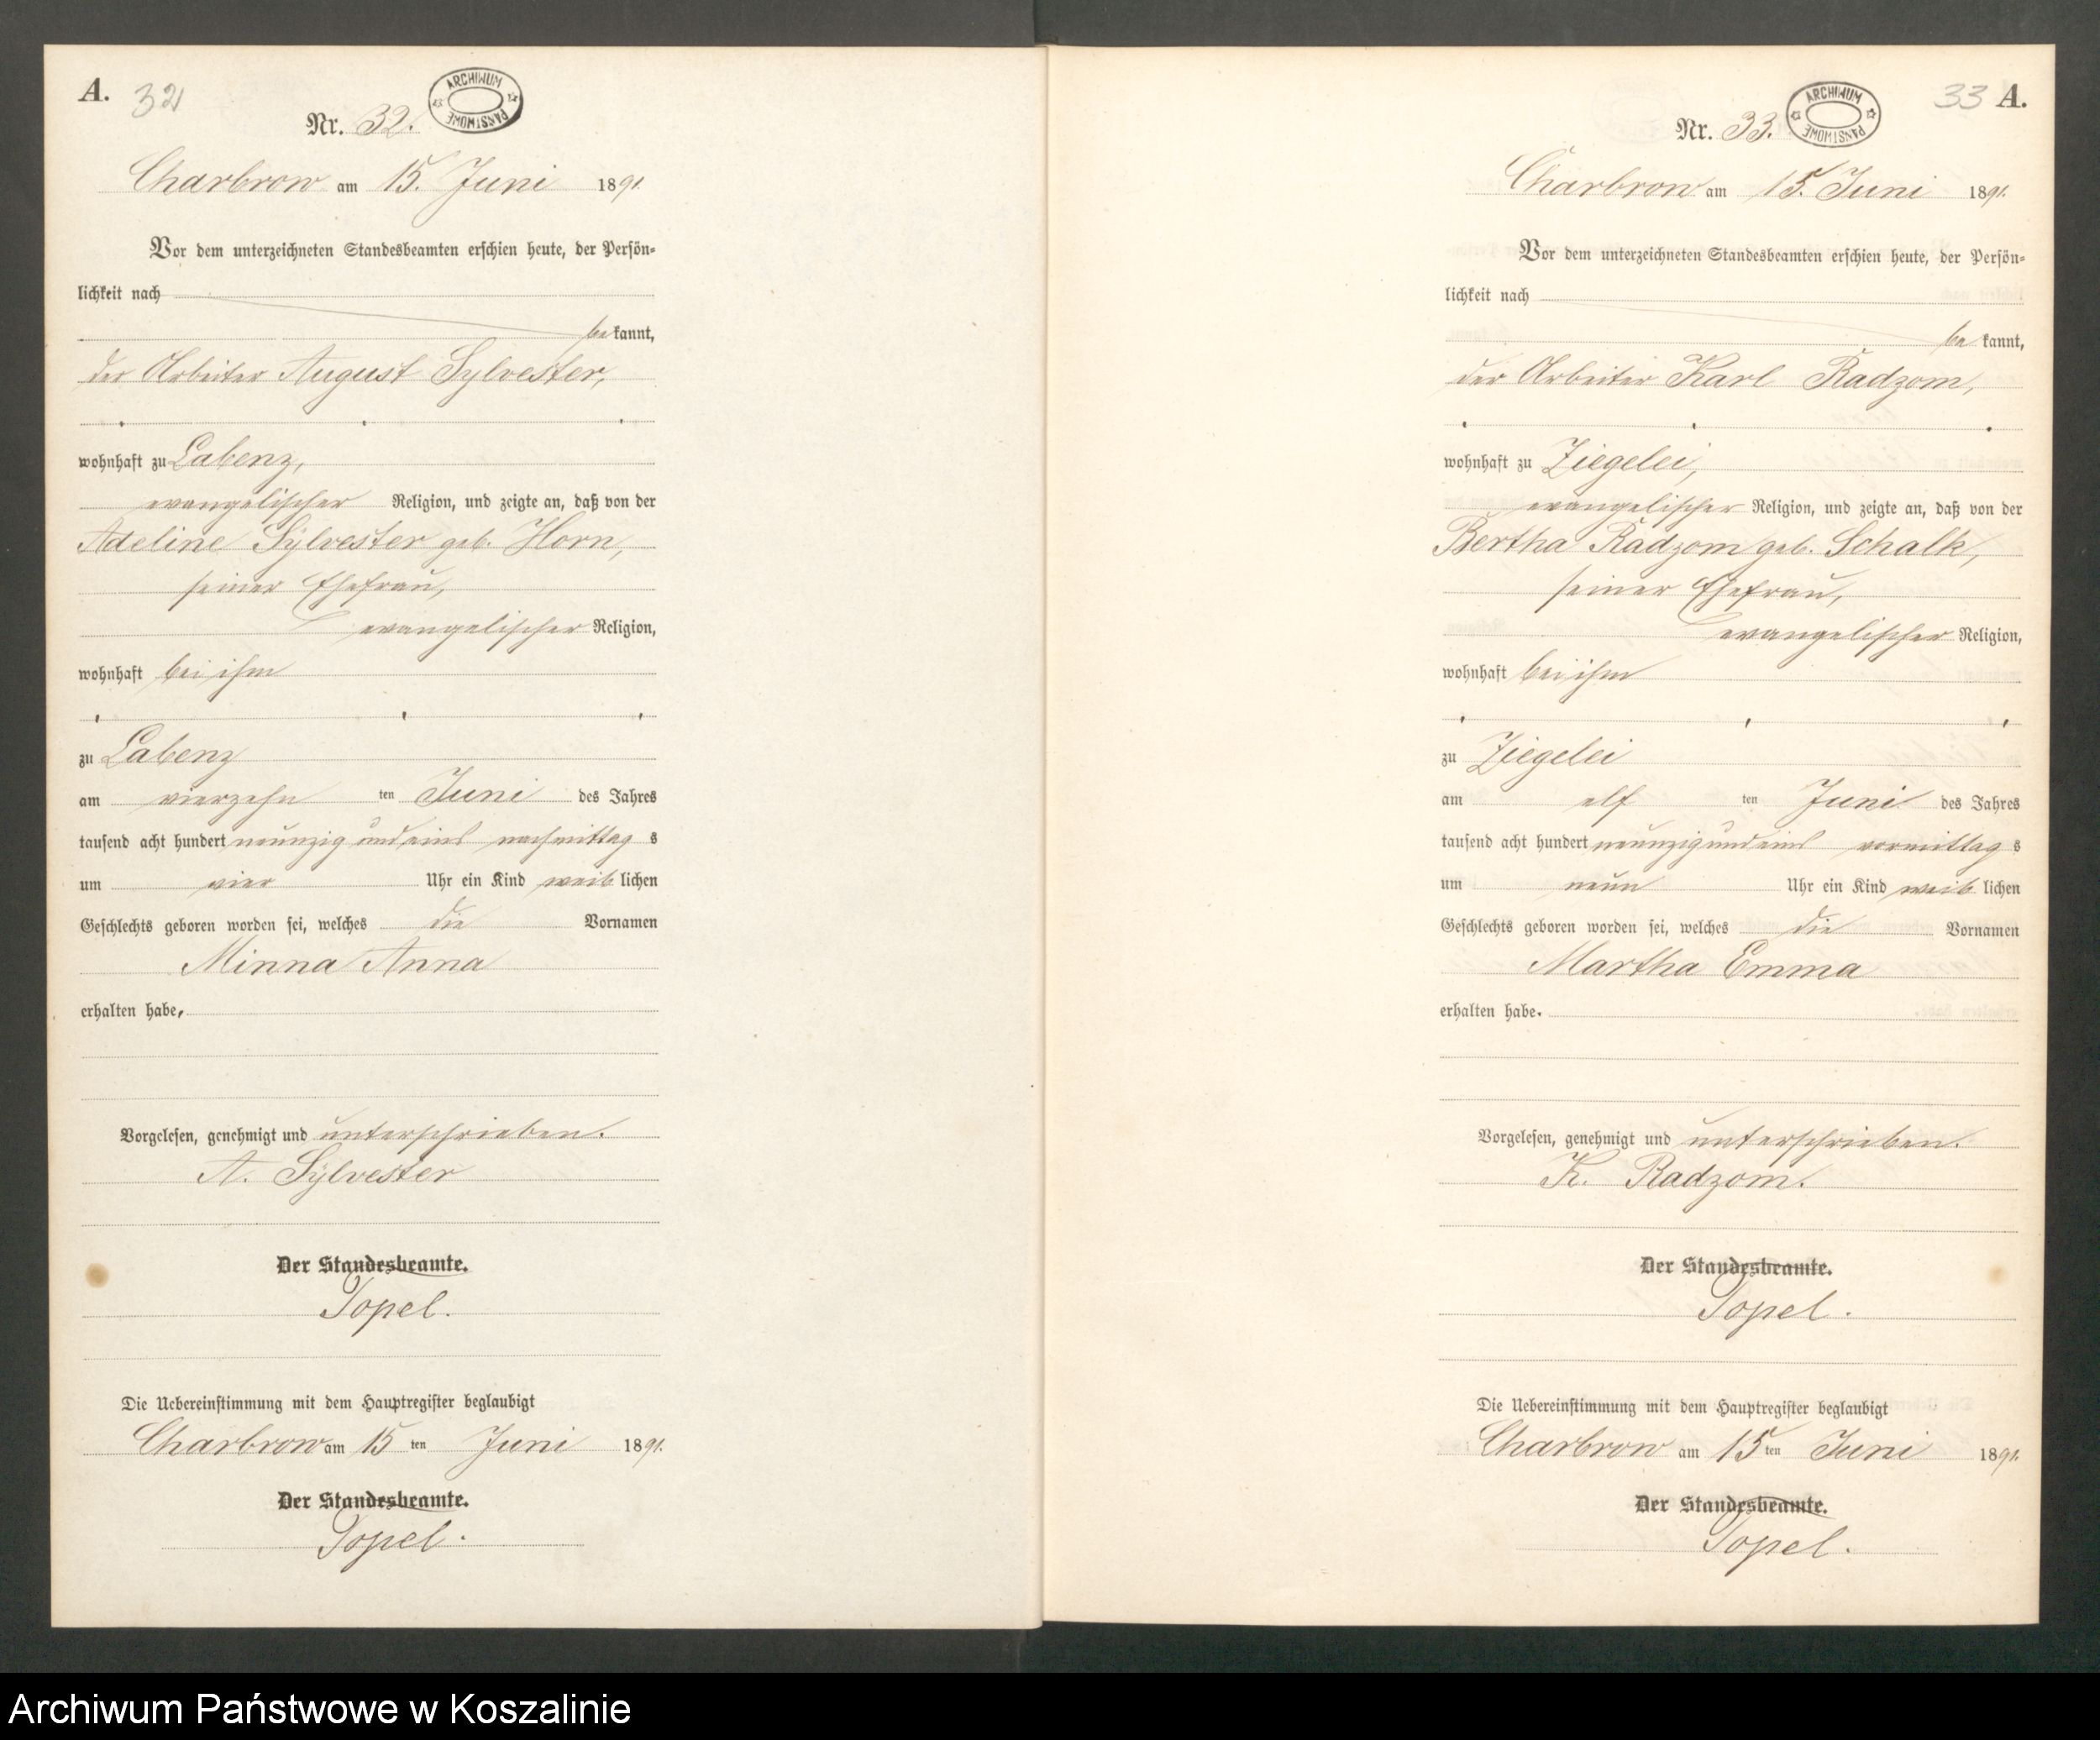 A.
32
Nr. 32.
ARCHIWUM PAŃSTWOWE
Charbrow am 15. Juni 1891.
Vor dem unterzeichneten Standesbeamten erschien heute, der Persön=
lichkeit nach
be kannt,
der Arbeiter August Sylvester,
wohnhaft zu Labenz,
evangelischer Religion, und zeigte an, daß von der
Adeline Sylvester geb. Horn,
seiner Ehefrau,
evangelischer Religion,
wohnhaft bei ihm
zu Labenz
am vierzehn ten Juni des Jahres
tausend acht hundert neunzig und eins nachmittag s
um vier Uhr ein Kind weib lichen
Geschlechts geboren worden sei, welches die Vornamen
Minna Anna
erhalten habe.
Vorgelesen, genehmigt und unterschrieben.
A. Sylvester
Der Standesbeamte.
Topel.
Die Uebereinstimmung mit dem Hauptregister beglaubigt
Charbrow am 15 ten Juni 1891.
Der Standesbeamte.
Topel.
33 A.
Nr. 33.
ARCHIWUM PAŃSTWOWE
Charbrow am 15. Juni 1891.
Vor dem unterzeichneten Standesbeamten erschien heute, der Persön=
lichkeit nach
be kannt,
der Arbeiter Karl Radzom,
wohnhaft zu Ziegelei,
evangelischer Religion, und zeigte an, daß von der
Bertha Radzom geb. Schalk,
seiner Ehefrau,
evangelischer Religion,
wohnhaft bei ihm
zu Ziegelei
am elf ten Juni des Jahres
tausend acht hundert neunzig und eins vormittag s
um neun Uhr ein Kind weib lichen
Geschlechts geboren worden sei, welches die Vornamen
Martha Emma
erhalten habe.
Vorgelesen, genehmigt und unterschrieben.
K. Radzom.
Der Standesbeamte.
Topel.
Die Uebereinstimmung mit dem Hauptregister beglaubigt
Charbrow am 15 ten Juni 1891.
Der Standesbeamte.
Topel.
Archiwum Państwowe w Koszalinie